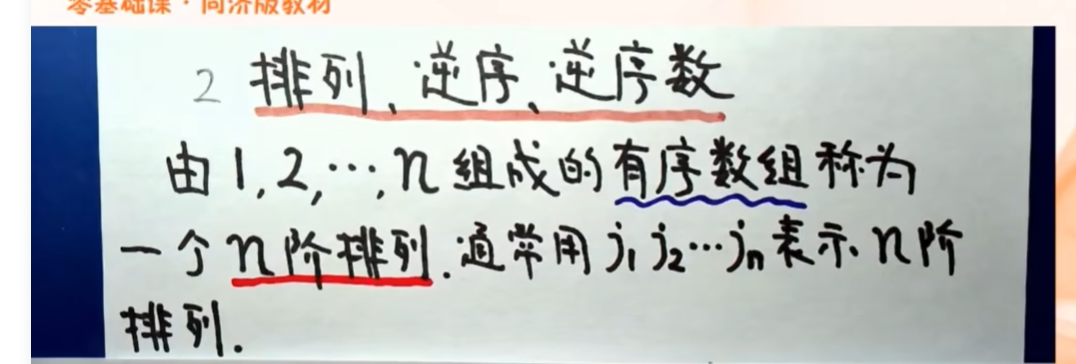 零基础课·同济版教材
2 排列、逆序、逆序数
由1,2,…,n组成的有序数组称为
一个n阶排列.通常用j₁j₂…jₙ表示n阶
排列.